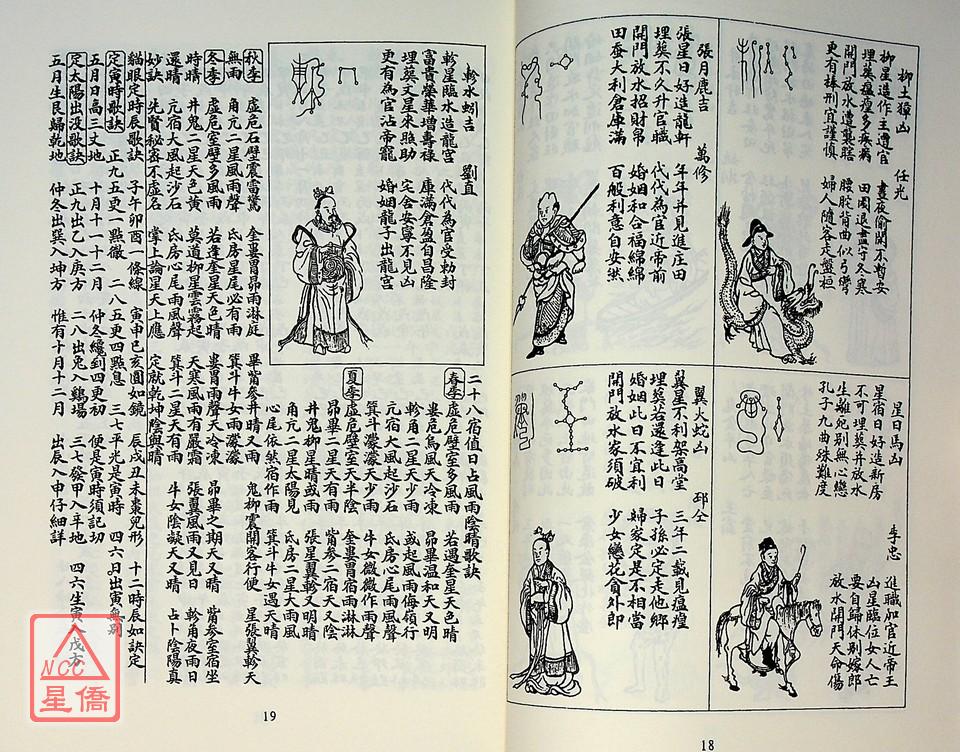 柳土獐凶 任光
柳星造作主遭官 晝夜偷閑不暫安
埋葬瘟疫多疾病 田園退盡守冬寒
開門放水遭聾瞎 腰駝背曲似弓彎
更有棒刑宜謹慎 婦人隨客走盤桓
張月鹿吉 萬修
張星日好造龍軒 年年并見進庄田
埋葬不久升官職 代代為官近帝前
開門放水招財帛 婚姻和合福綿綿
田蚕大利倉庫滿 百般利意自安然
星日馬凶 李忠
星宿日好造新房 進職加官近帝王
不可埋葬并放水 凶星臨位女人亡
生離死別無心戀 要自歸休別嫁郎
孔子九曲殊難度 放水開門天命傷
翼火蛇凶 邳仝
翼星不利架高堂 三年二載見瘟瘟
埋葬若還逢此日 子孫必定走他鄉
婚姻此日不宜利 婦家定是不相當
開門放水家須破 少女戀花貪外郎
18
軫水蚓吉 劉直
軫星臨水造龍宮 代代為官受勅封
富貴榮華增壽祿 庫滿倉盈自昌隆
埋葬文星來照助 宅舍安寧不見凶
更有為官沾帝寵 婚姻龍子出龍宮
二十八宿值日占風雨陰晴歌訣
春季 虛危壁室多風雨 若遇奎星天色晴
婁胃烏風天冷凍 昴畢溫和天又明
軫角二星天少雨 或起風雨侮嶺行
亢宿大風起沙石 氐房心尾風雨聲
箕斗濛濛天少雨 牛女微微作雨聲
夏季 虛危壁室天半陰 奎婁胃宿雨淋淋
昴畢二星天有雨 觜參二宿天又陰
井鬼柳星晴或雨 張星翼軫又明晴
角亢二星太陽見 氐房二星大雨風
心尾依然宿作雨 箕斗牛女遇天晴
秋季 虛危石壁震雷驚 奎婁胃昴雨淋庭 畢觜參井晴又雨 鬼柳雲開客行便 星張翼軫天
無雨 角亢二星風雨聲 氐房星尾必有雨 箕斗牛女雨濛濛
冬季 虛危室壁多風雨 若逢奎星天色晴 婁胃雨聲天冷凍 昴畢之期天又晴 觜參室宿坐
時晴 井鬼二星天色黃 莫道柳星雲霧起 天寒風雨有嚴霜 張翼風雨又見日 軫角夜雨日
還晴 亢宿大風起沙石 氐房心尾雨風聲 箕斗二星天有雨 牛女陰凝天又晴 占卜陰陽真
妙訣 先賢秘密不虛名 掌上論星天上應 定就乾坤陰與晴
貓眼定時辰歌訣 子午卯酉一條線 寅申巳亥圓如鏡 辰戌丑未棗兒形 十二時辰如訣定
定寅時歌訣 正九五更一點徹 二八五更四點息 三七平光是寅時 四六日出寅無別
五月日高三丈地 十月十一十二月 仲冬纔到四更初 便是寅時須記切
定太陽出沒歌訣 正九出乙入庚方 二八出兎入鷄場 三七發甲入辛地 四六生寅入戊方
五月生艮歸乾地 仲冬出巽入坤方 惟有十月十二月 出辰入申仔細詳
19
NCC
星僑